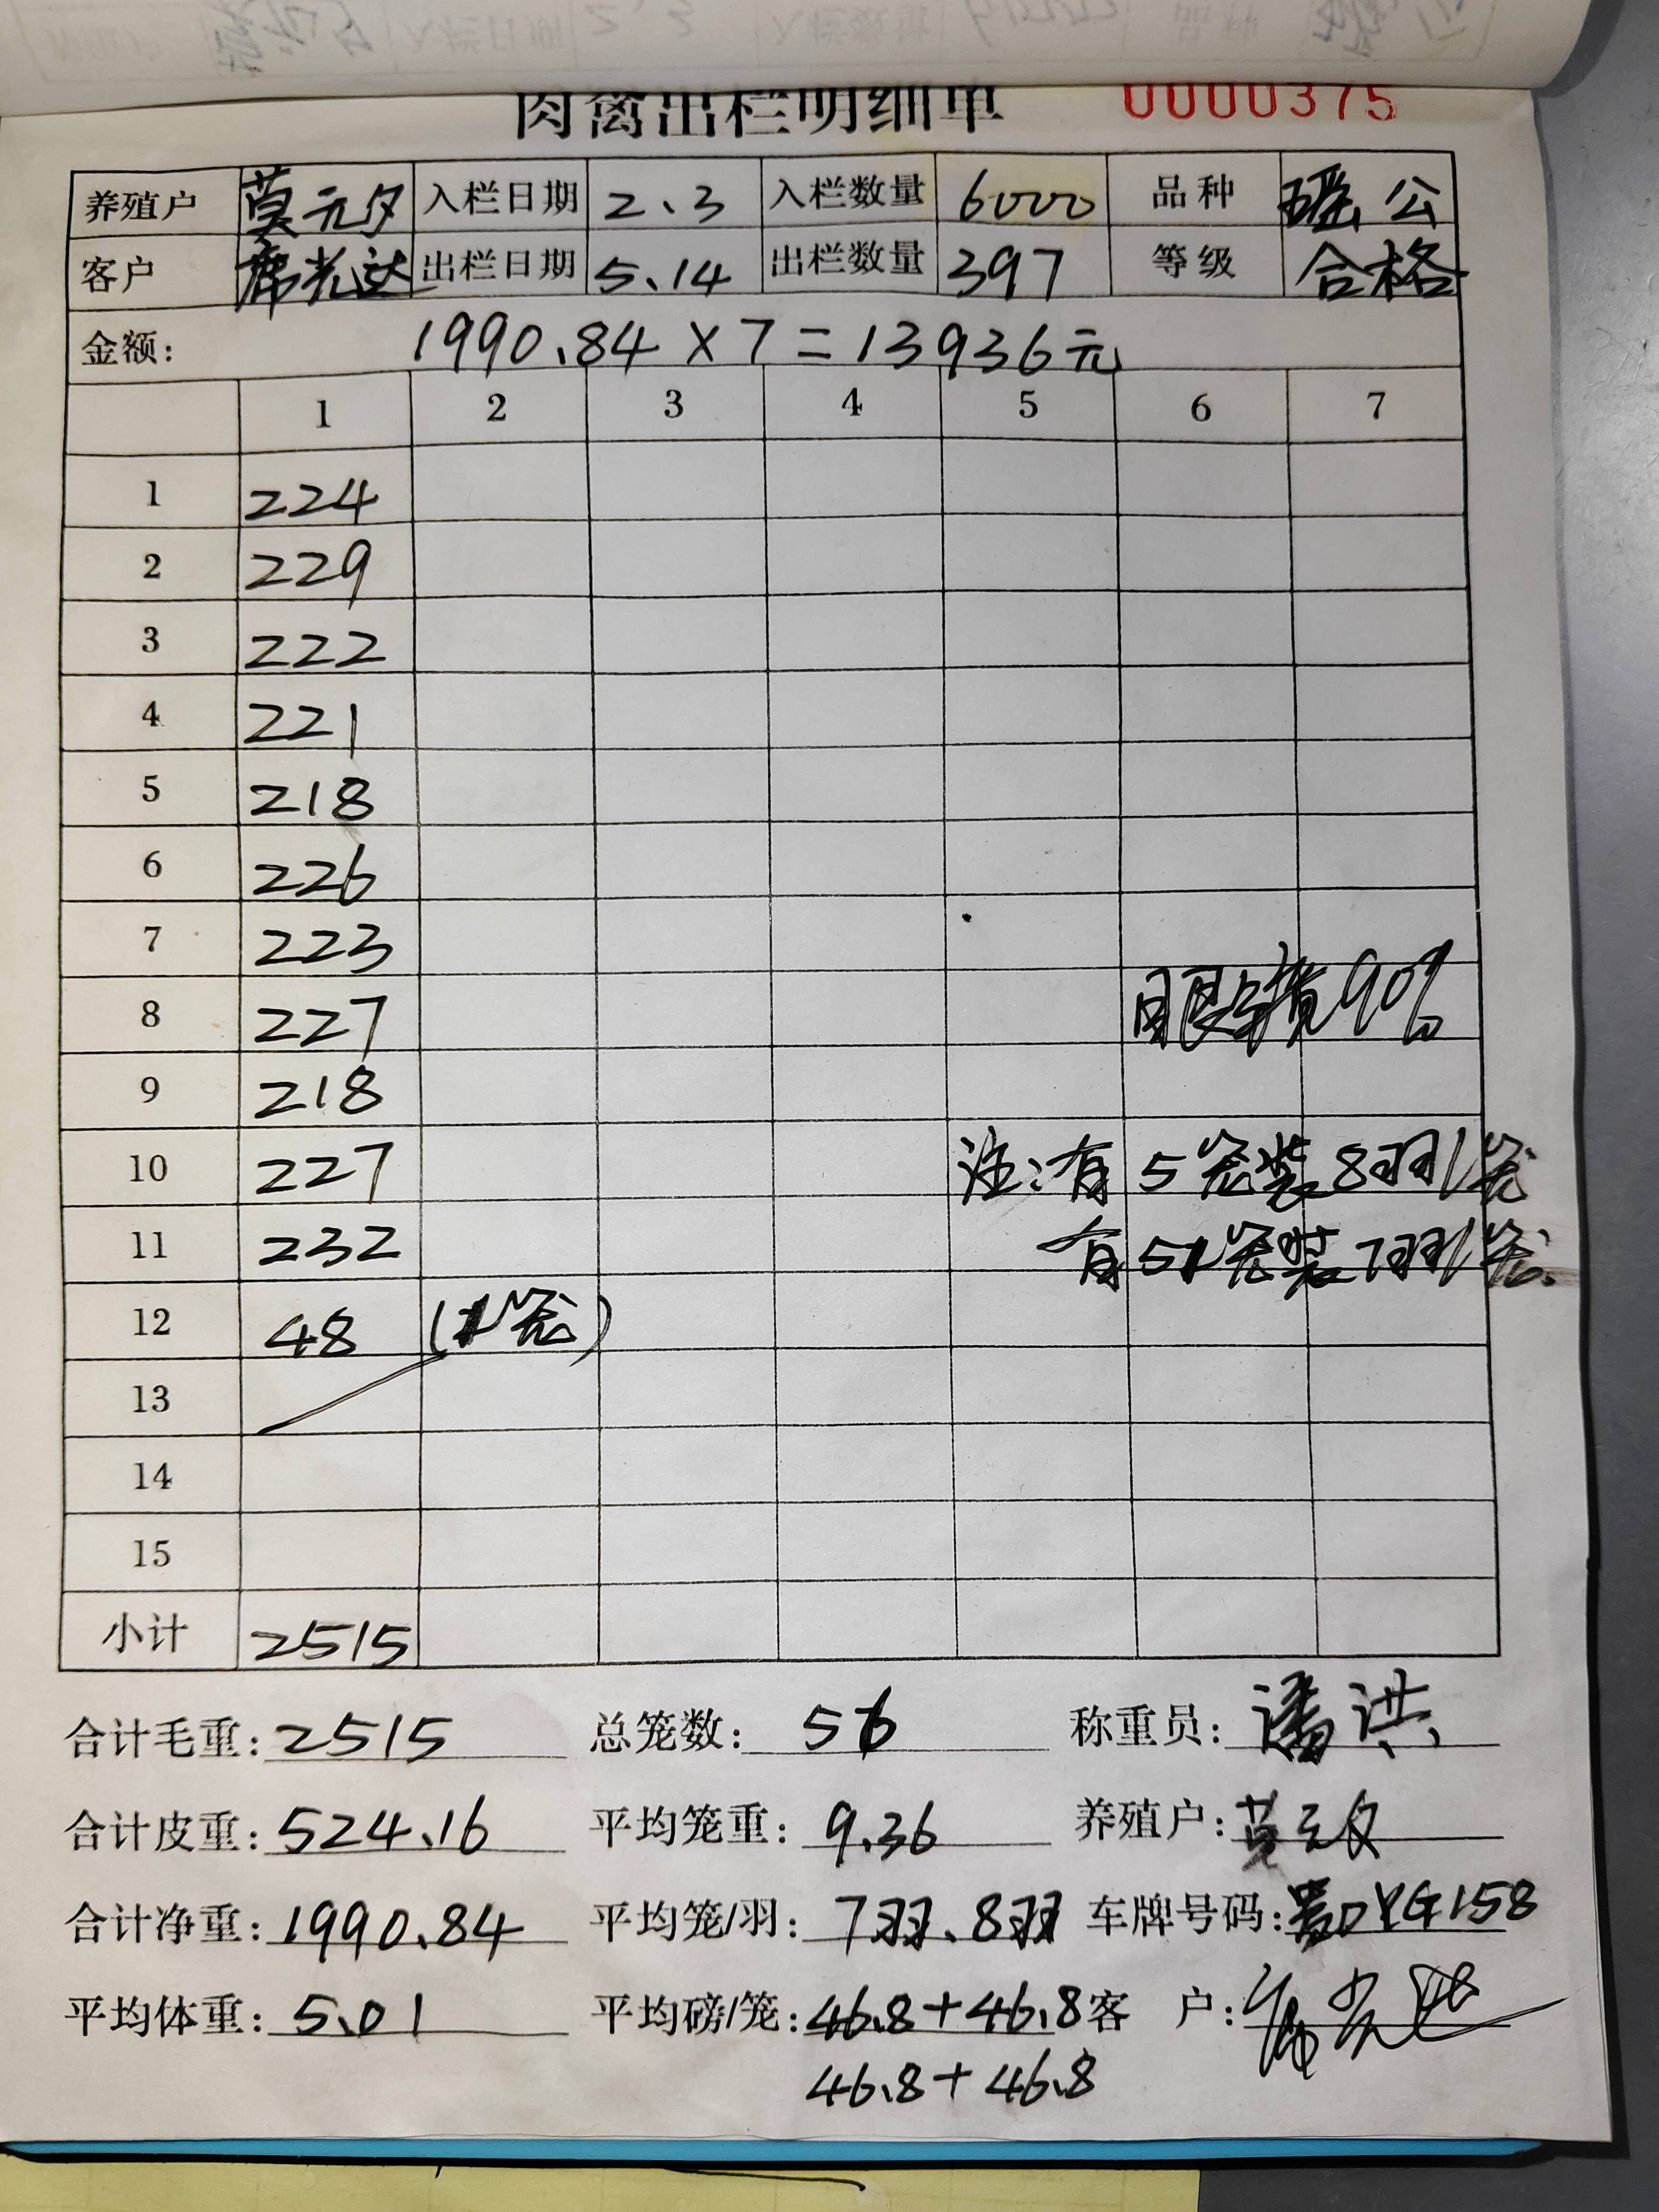 肉禽出栏明细单 0000375
养殖户 莫元夕 入栏日期 2、3 入栏数量 6000 品种 瑶公
客户 席光达 出栏日期 5、14 出栏数量 397 等级 合格
金额: 1990.84×7=13936元
1 2 3 4 5 6 7
1 224
2 229
3 222
4 221
5 218
6 226
7 223
8 227 眼续90%
9 218
10 227 注:有5笼装8羽/笼
11 232 有51笼装7羽/笼
12 48 (1笼)
13
14
15
小计 2515
合计毛重: 2515 总笼数: 56 称重员: 潘洪
合计皮重: 524.16 平均笼重: 9.36 养殖户: 莫元夕
合计净重: 1990.84 平均笼/羽: 7羽、8羽 车牌号码: YG158
平均体重: 5.01 平均磅/笼: 46.8+46.8 客 户: 席光达
46.8+46.8